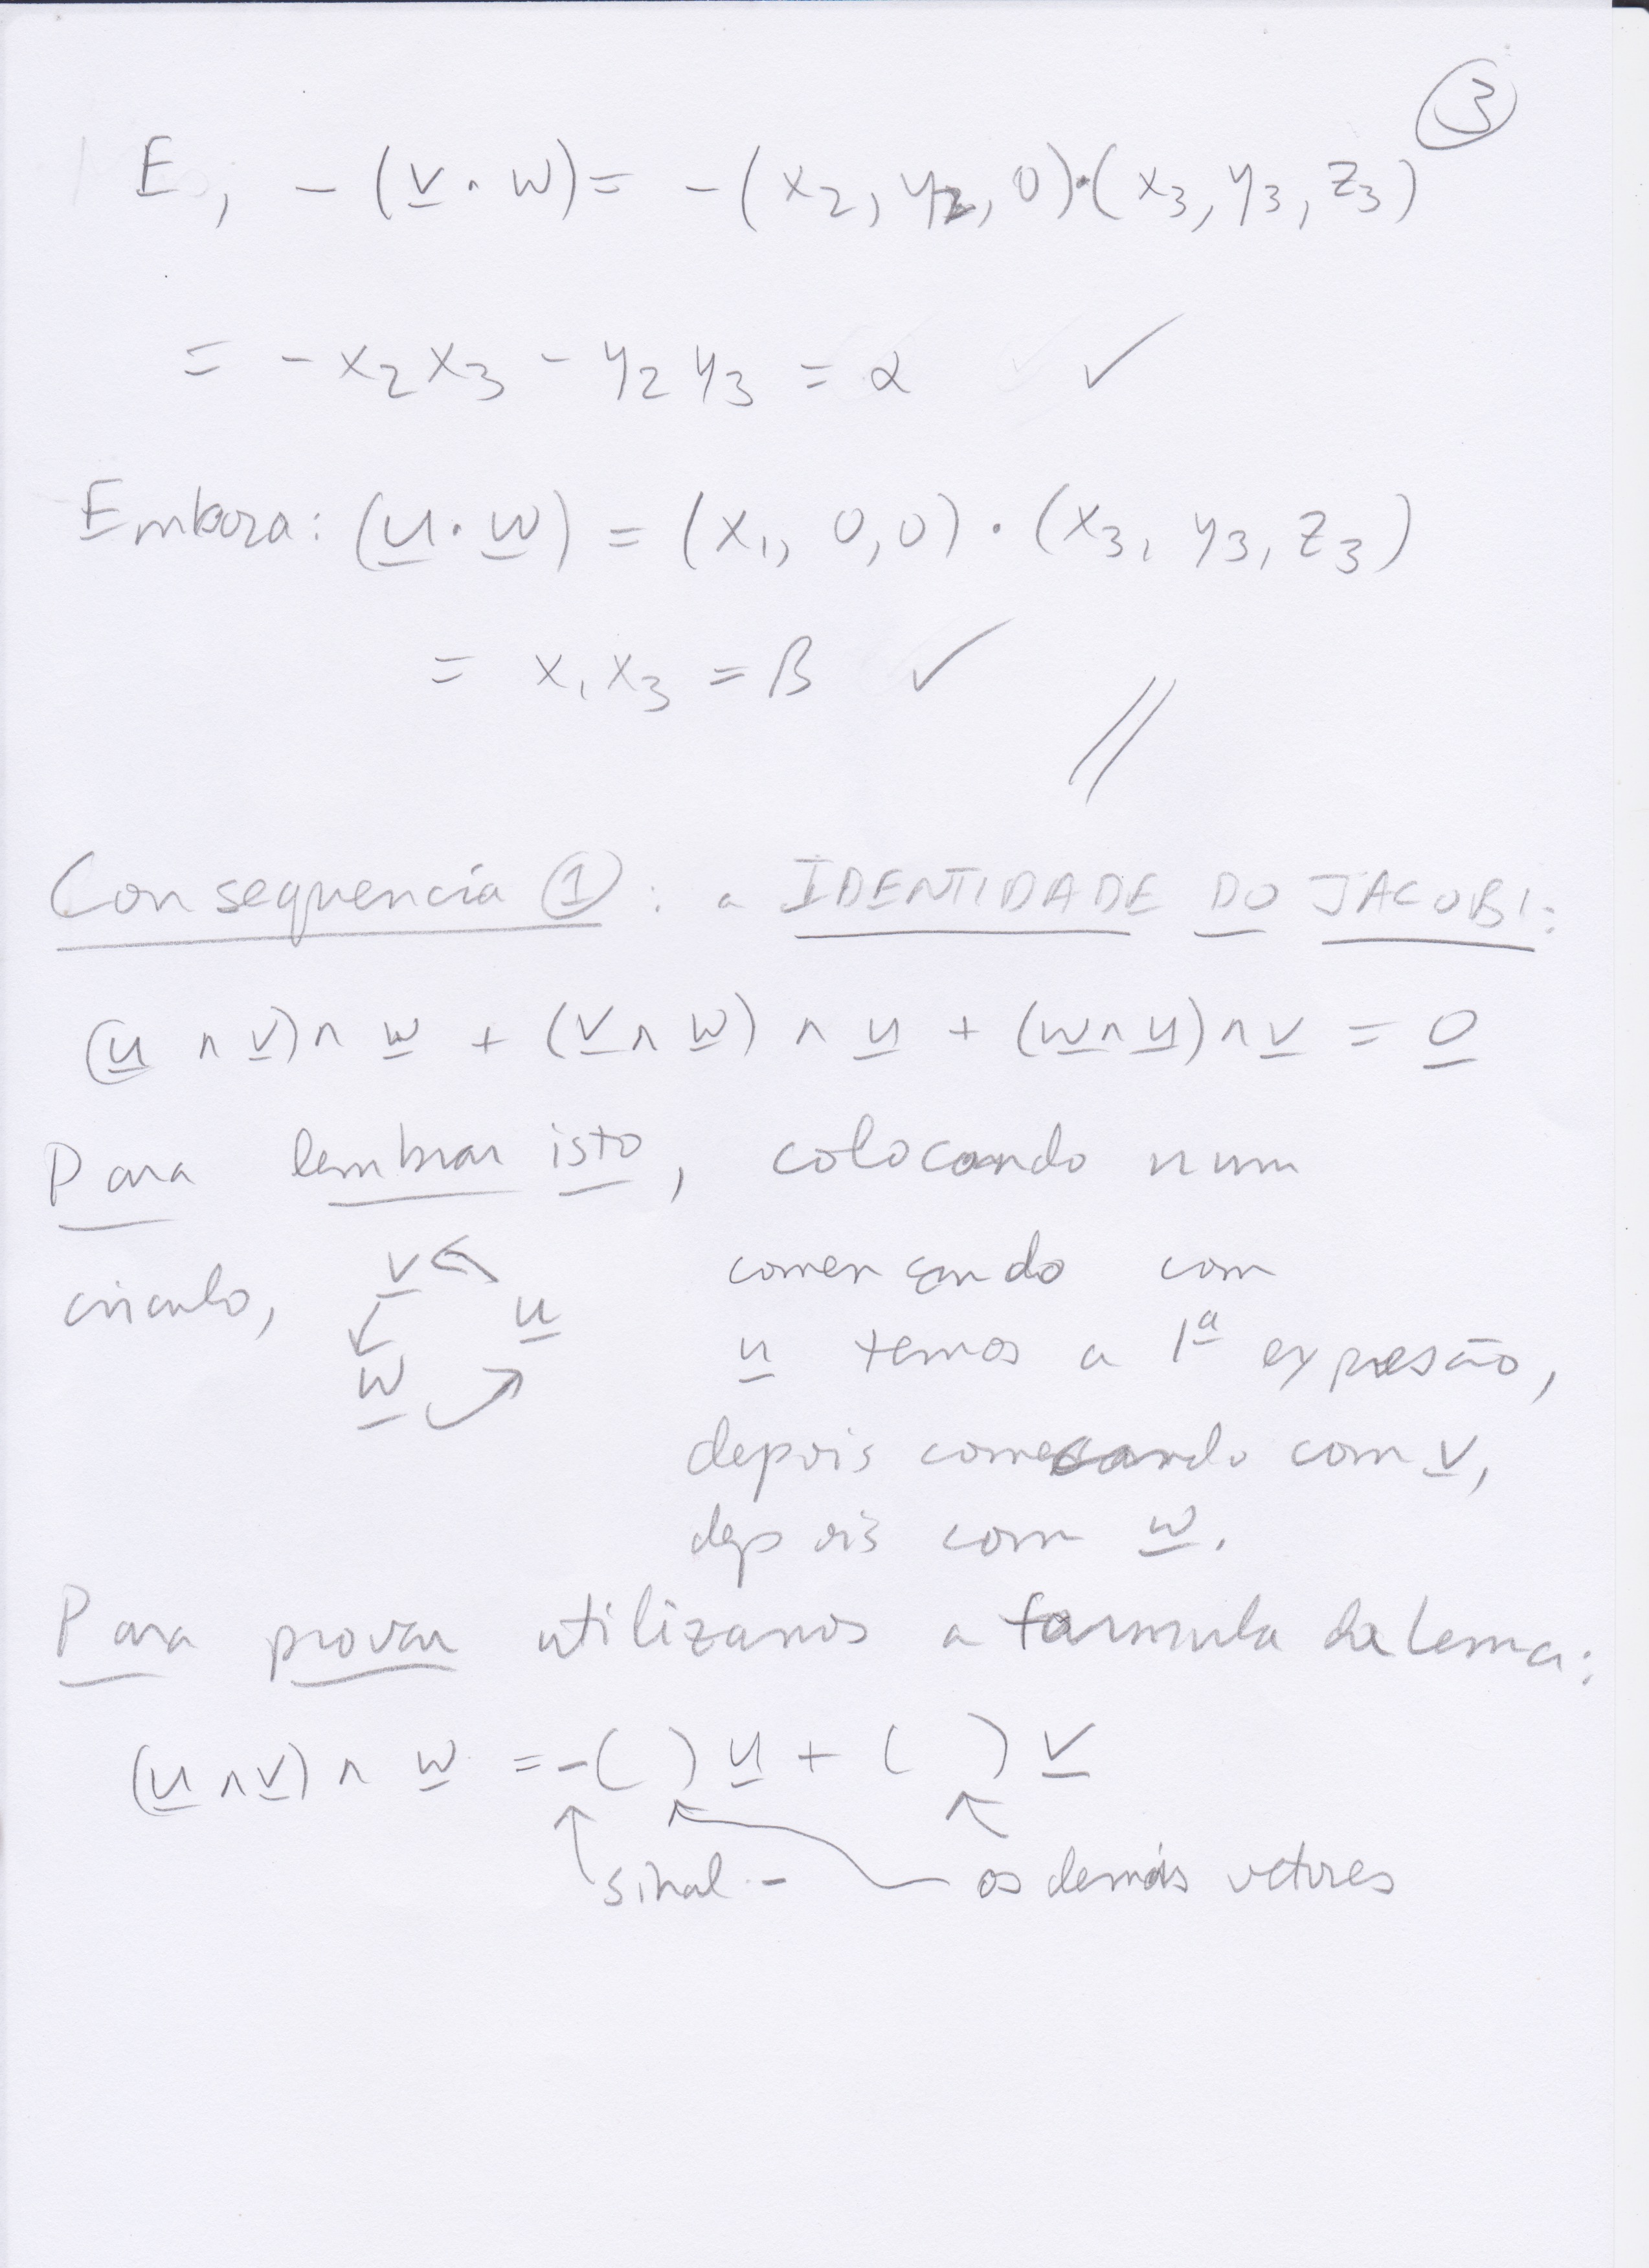 3
E, - (v · w) = - (x₂, y₂, 0)·(x₃, y₃, z₃)
= - x₂ x₃ - y₂ y₃ = α ✓
Embora: (u · w) = (x₁, 0, 0) · (x₃, y₃, z₃)
= x₁ x₃ = β ✓
//
Consequencia ①: a IDENTIDADE DO JACOBI:
(u ∧ v) ∧ w + (v ∧ w) ∧ u + (w ∧ u) ∧ v = 0
Para lembrar isto, colocando num
circulo,
v
u
w
començando com
u temos a 1ª expresão,
depois começando com v,
depois com w.
Para provar utilizamos a formula da Lema:
(u ∧ v) ∧ w = -( ) u + ( ) v
sinal - os demais vetores